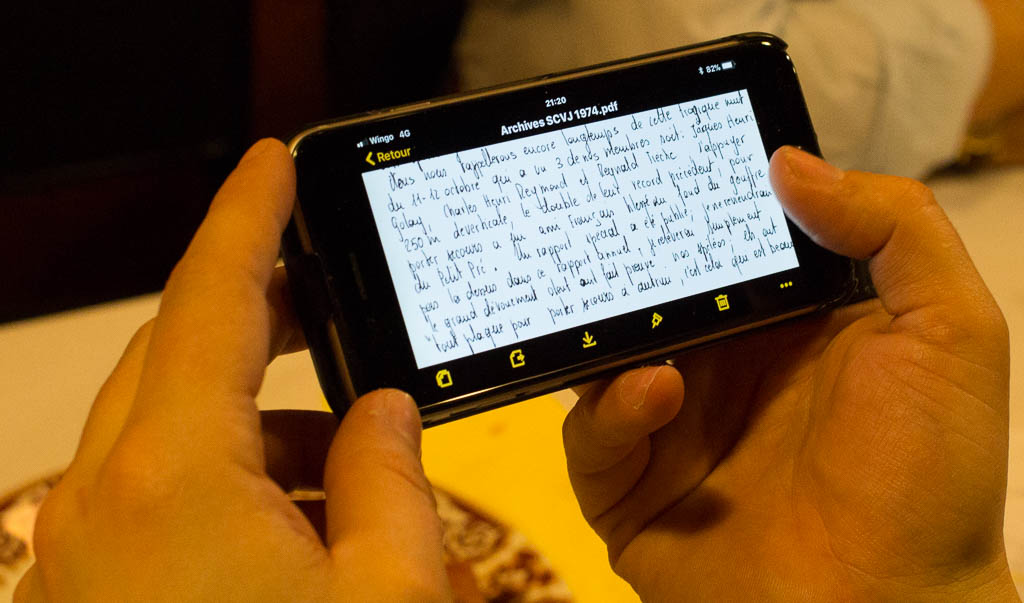 Wingo 4G 21:20 82%
Retour Archives SCVJ 1974.pdf
nous rappellerons encore longtemps de cette tragique nuit
du 11-12 octobre qui a vu 3 de nos membres soit: Jaques Henri
Golay, Charles Henri Reymond et Reynald rappuyer
250 m de verticale, le double de leur record précédent, pour
porter secours a un ami Français blessé au fond du gouffre
du Petit Pré. Un rapport spécial a été publié, je ne reviendrai
pas la dessus dans ce rapport annuel, je relèverai simplement
le grand dévouement dont ont fait preuve nos spéléos; ils ont
tout plaqué pour porter secours a autrui, c'est cela qui est beau